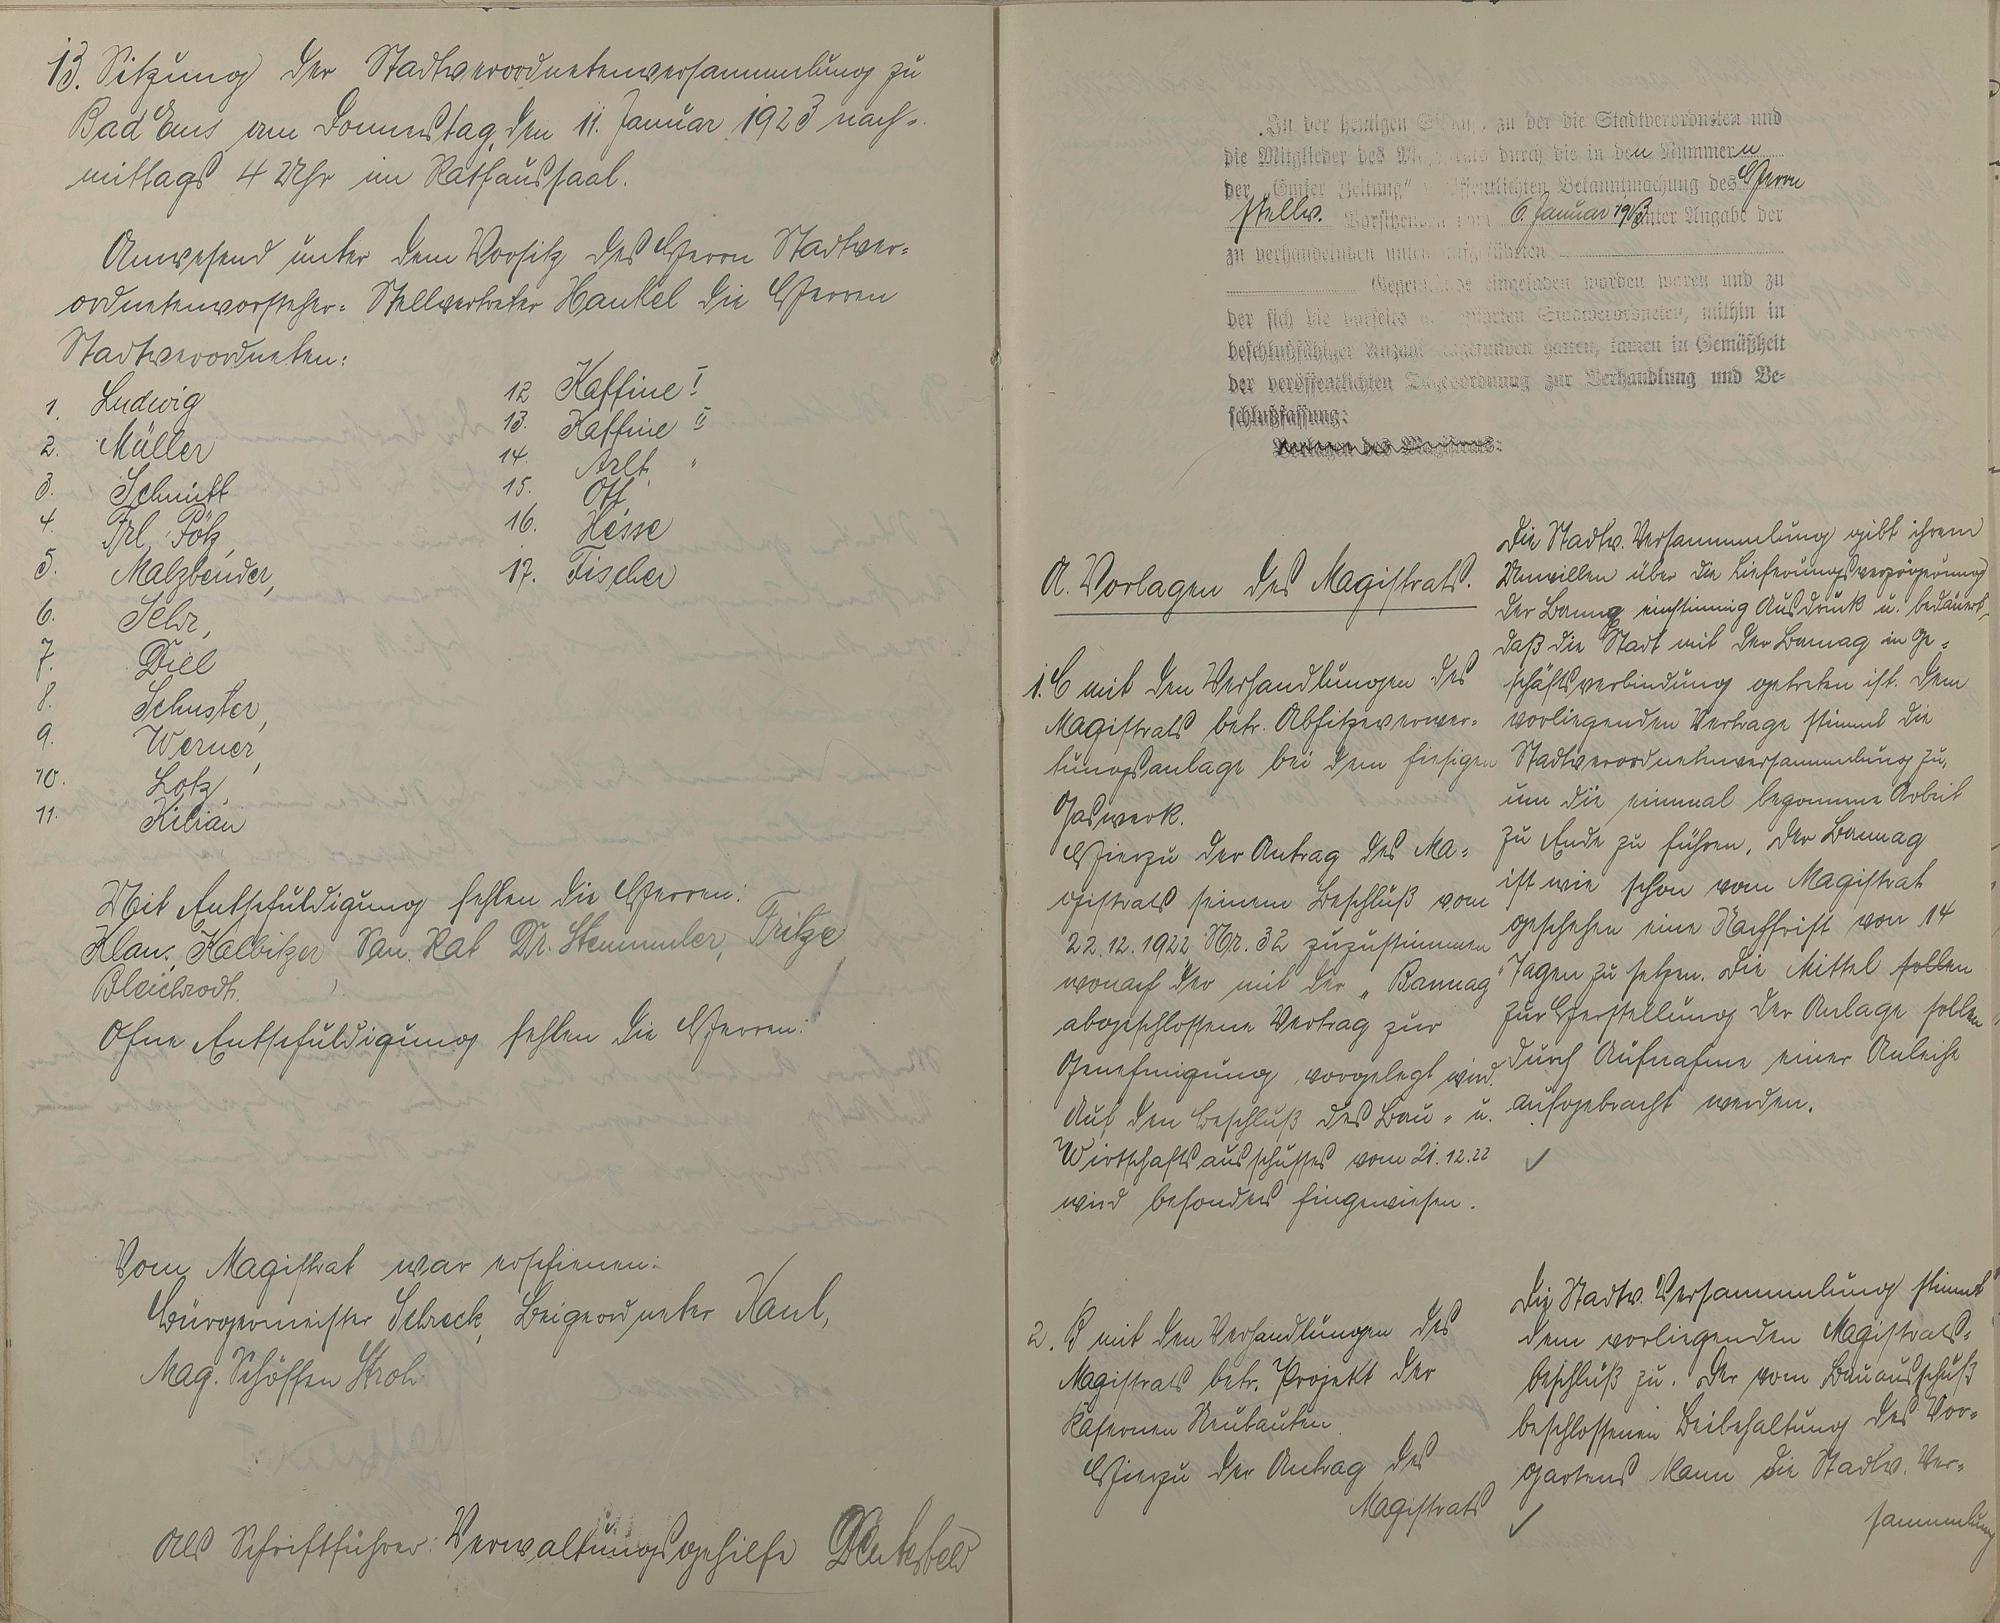 13. Sitzung der Stadtverordnetenversammlung zu
Bad Ems am Donnerstag, den 11. Januar 1923 nach=
mittags 4 Uhr im Rathaussaal.
Anwesend unter dem Vorsitz des Herrn Stadtver=
ordnetenvorsteher= Stellvertreter Hankel die Herren
Stadtverordneten:
1. Ludwig
2. Müller
3. Schmitt
4. Frl. Pötz,
5. Malzbender,
6. Sehr,
7. Diel
8. Schuster,
9. Werner,
10. Lotz,
11. Kilian
12 Kaffine I
13. Kaffine II
14. Arlt
15. Ott
16. Hesse
17. Fischer
Mit Entschuldigung fehlen die Herren:
Klaus, Kalbitzer San. Rat Dr. Stemmler, Fritze
Bleichrodt.
Ohne Entschuldigung fehlen die Herren:
Vom Magistrat war erschienen:
Bürgermeister Schreck, Beigeordneter Kaul,
Mag. Schöffen Stroh
Als Schriftführer: Verwaltungsgehilfe
In der heutigen Sitzung, zu der die Stadtverordneten und
die Mitglieder des Magistrats durch die in den Nummern
der „Emser Zeitung" veröffentlichten Bekanntmachung des Herrn
stellv. Vorstehers vom 6. Januar 1923 unter Angabe der
zu verhandelnden unten aufgeführten
Gegenstände eingeladen worden waren und zu
der sich die vorseits aufgeführten Stadtverordneten, mithin in
beschlußfähiger Anzahl eingefunden hatten, kamen in Gemäßheit
der veröffentlichten Tagesordnung zur Verhandlung und Be=
schlußfassung:
Vorlagen des Magistrats:
A. Vorlagen des Magistrats.
1. C mit den Verhandlungen des
Magistrats betr. Abhitzeverwer=
tungsanlage bei dem hiesigen
Gaswerk.
Hierzu der Antrag des Ma=
gistrats seinem Beschluß vom
22.12.1922 Nr. 32 zuzustimmen
wonach der mit der „Bamag"
abgeschlossene Vertrag zur
Genehmigung vorgelegt wird.
Auf den Beschluß des Bau= u.
Wirtschaftsausschusses vom 21.12.22
wird besonders hingewiesen.
Die Stadtv. Versammlung gibt ihrem
Unwillen über die Lieferungsverzögerung
der Bamag einstimmig Ausdruck u. bedauert,
daß die Stadt mit der Bamag in Ge=
schäftsverbindung getreten ist. Dem
vorliegenden Vertrage stimmt die
Stadtverordnetenversammlung zu,
um die einmal begonnene Arbeit
zu Ende zu führen. Der Bamag
ist wie schon vom Magistrat
geschehen eine Nachfrist von 14
Tagen zu setzen. Die Mittel sollen
zur Herstellung der Anlage sollen
durch Aufnahme einer Anleihe
aufgebracht werden.
2. B mit den Verhandlungen des
Magistrats betr. Projekt der
Kasernen Neubauten.
Hierzu der Antrag des
Magistrats
Die Stadtv. Versammlung stimmt
dem vorliegenden Magistrats=
beschluß zu. Der vom Bauausschuß
beschlossenen Beibehaltung des Vor=
gartens kann die Stadtv. Ver=
sammlung